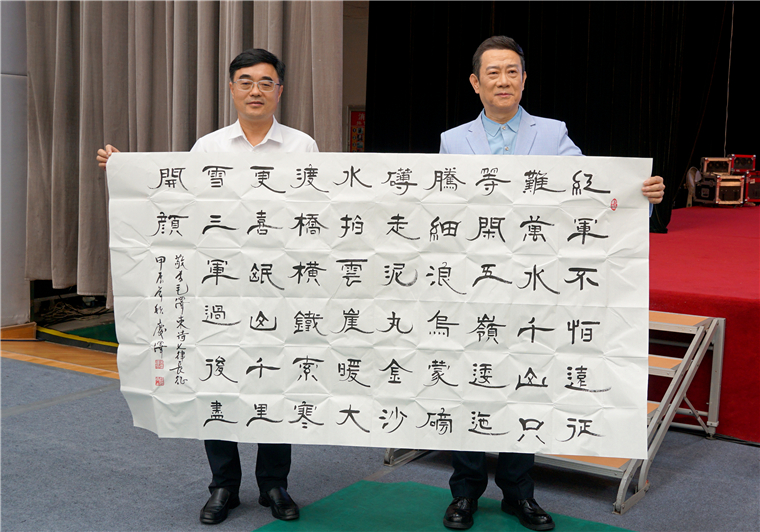 紅軍不怕遠征
難萬水千山只
等閑五嶺逶迤
騰細浪烏蒙磅
礴走泥丸金沙
水拍雲崖暖大
渡橋橫鐵索寒
更喜岷山千里
雪三軍過後盡
開顏
敬書毛澤東詩七律長征
甲辰年秋